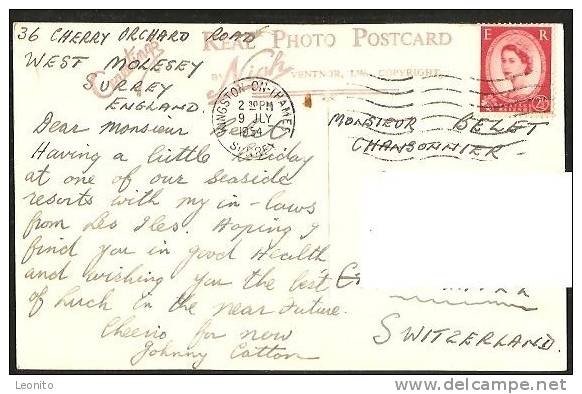 36 CHERRY ORCHARD ROAD
WEST MOLESEY
SURREY
ENGLAND
Greetings
REAL PHOTO POSTCARD
BY Nigh
VENTNOR, I.W. COPYRIGHT.
E R
2½D
KINGSTON-ON-THAMES
2 30 PM
9 JLY
1954
SURREY
MONSIEUR BELET
CHANSONNIER
SWITZERLAND.
Dear Monsieur Belet
Having a little holiday
at one of our seaside
resorts with my in-laws
from Les Iles. Hoping I
find you in good Health
and wishing you the best
of luck in the near future.
Cheerio for now
Johnny Cotton
Leonito
delcampe.net